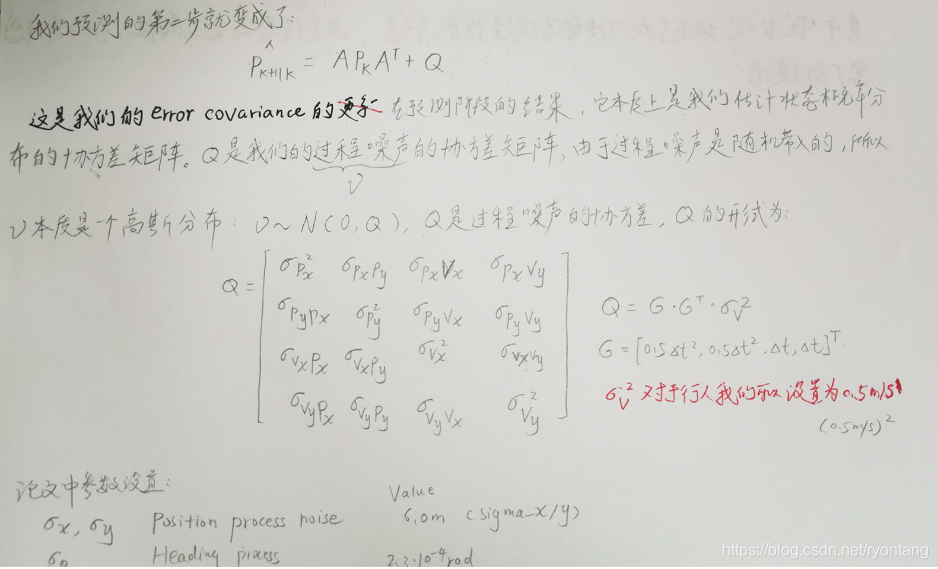 我们预测的第二步就变成了:
P̂k+1|k = A Pk Aᵀ + Q
这是我们的 error covariance 的更新在预测阶段的结果,它本质上是我们估计状态概率分
布的协方差矩阵。Q是我们的过程噪声的协方差矩阵,由于过程噪声是随机带入的,所以
ν
ν本质是一个高斯分布: ν~N(0,Q), Q是过程噪声的协方差,Q的形式为:
Q = [ σpx² σpxpy σpxvx σpxvy
σpypx σpy² σpyvx σpyvy
σvxpx σvxpy σvx² σvxvy
σvypx σvypy σvyvx σvy² ]
Q = G·Gᵀ·σν²
G = [0.5Δt², 0.5Δt², Δt, Δt]ᵀ
σν² 对于行人我们可以设置为0.5m/s
(0.5m/s)²
论文中参数设置:
Value
σx, σy Position process noise 6.0m (sigma-x/y)
Heading process 2.3·10⁻⁴rad
https://blog.csdn.net/ryontang